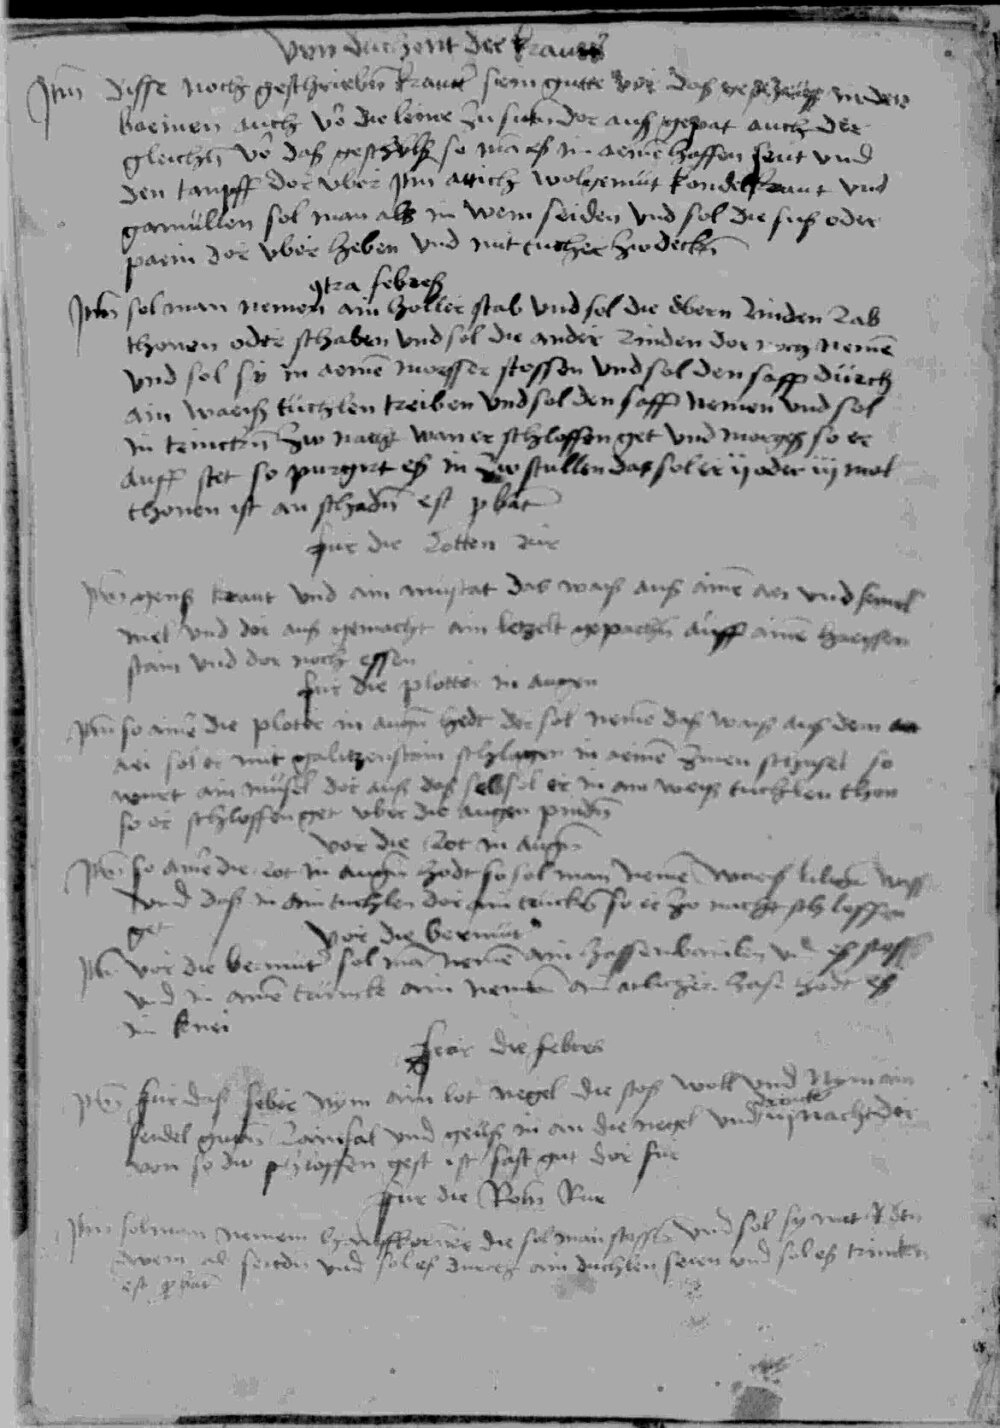 von der zent der kraut
Jtm disse noch geschriebn kraut sein gutte vor das
baeinen auch vo die leme zu sein dor auß gepat auch der
gleichn vo das geschülß so man es in aeinē haffen seut und
den tampff dor vber Jtm attich wolgemüt kondelkraut vnd
gamüllen sol man als in wein seiden vnd sol die füß oder
paein dor vber heben vnd mit tucher zw deckn
9tra febres
Jtm sol man nemen ain holler stab vnd sol die obern rinden rab
thonen oder schaben vnd sol die ander rinden dor noch nemē
vnd sol sÿ in aeinē morsser stossen vnd sol den safft dürch
ain waeiß tüchlen treiben vnd sol den safft nemen vnd sol
in trinckn zw nacht wan er schloffen get vnd morges so er
auff stet so purgirt es in zw stullen das sol er ij oder iij mol
thonen ist an schadn est pbatū
fur die rotten rür
Jtm genß kraut vnd ain muscat das waiß auß ainē aei vnd semel
mel vnd dor auß gemacht ain letzelt gepachn auff ainē haeyssen
stain vnd dor noch essen
fur die plotter in augen
Jtm so ainē die ploter in augn hedt der sol nemē daß waiß auß dem
aei sol er mit galitzenstain schlagen in aeinē zinen schüsel so
wirt ain müsel dor auß daß selb sol er in ain weiß tuchlen thon
so er schloffen get vber die augen pindn
vor die rot in augn
Jtm so ainē die rot in augn hodt so sol man nemē waeiß lilien
vnd daß in ain tuchlen dor ein trückn so er zu nacht schloffen
get
vor die bermüt
Jtm vor die bermüt sol mā nemē ain hassenbainlen vnd es
vnd in ainē trincke ain nemen ain hasē hodt es
im knei
fur die febres
Jtm für das feber nym ain lot negel die stoß woll vnd nym ain
seidel guten rainfal vnd geüß in an die negel vnd trinck iij nacht dor
von so du schloffen gest ist fast gut dor für
fur die Rotn Rur
Jtm sol man nemen hanffkorner die sol man stossn vnd sol sy mit
wein al seiedn vnd sol es durch ain duchlen seien vnd sol es trincken
est pbatū